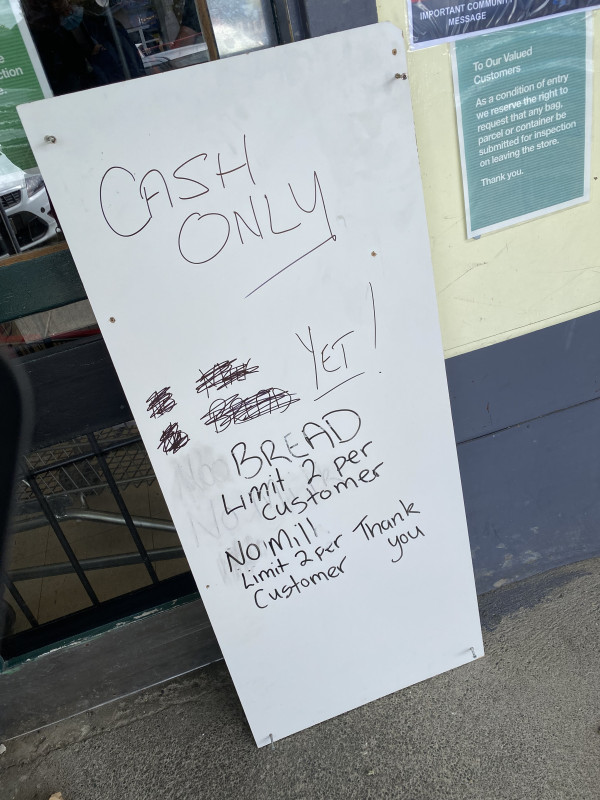 CASH
ONLY
YET!
BREAD
Limit 2 per
Customer
No Mill
Limit 2 per
Customer
Thank
you
IMPORTANT COMMUNI
MESSAGE
To Our Valued
Customers
As a condition of entry
we reserve the right to
request that any bag,
parcel or container be
submitted for inspection
on leaving the store.
Thank you.
ction
e.